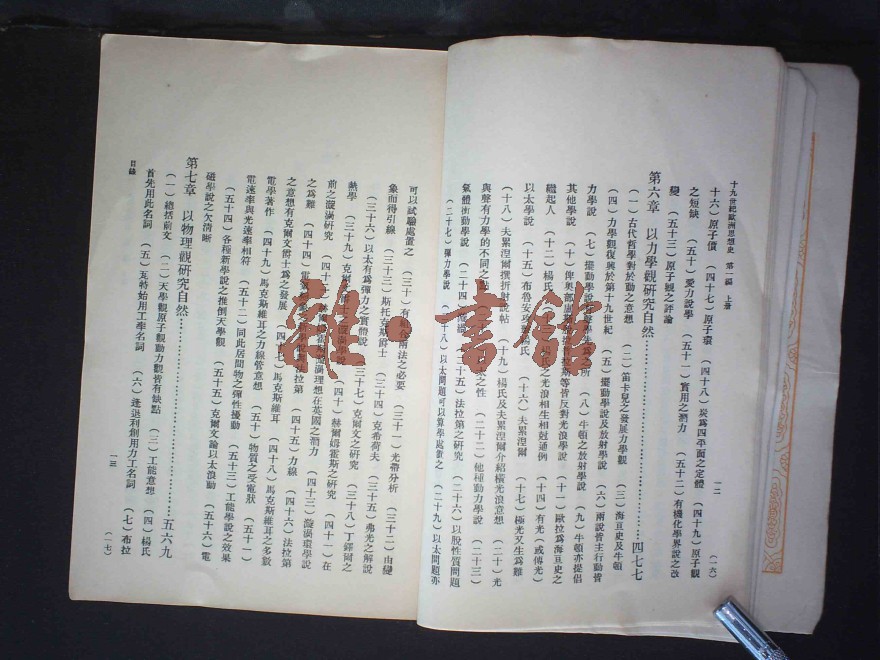 十九世紀歐洲思想史 第一編 上册
一二
(一六)
十六)原子價 (四十七)原子環 (四十八)炭爲四平面之定體 (四十九)原子觀
之短缺 (五十)愛力說學 (五十一)實用之潛力 (五十二)有機化學界說之改
變 (五十三)原子觀之評論
第六章 以力學觀研究自然……四七七
(一)古代哲學對於動之意想 (二)笛卡兒之發展力學觀 (三)海亘史及牛頓
(四)力學觀復興於第十九世紀 (五)擺動學說及放射學說 (六)兩說皆主行動皆
力學說 (七)擺動學說 所 (八)牛頓之放射學說 (九)牛頓亦提倡
其他學說 (十)俾奧部 等皆反對光浪學說 (十一)歐拉爲海亘史之
繼起人 (十二)楊氏 之光浪相生相尅通例 (十四)有光(或傳光)
以太學說 (十五)布魯安 楊氏 (十六)夫累涅爾 (十七)極光又生爲難
(十八)夫累涅爾撰折射說帖 (十九)楊氏及夫累涅爾介紹橫光浪意想 (二十)光
與聲有力學的不同之點 之性 (二十二)他種動力學說 (二十三)
氣體衝動學說 (二十四) (二十五)法拉第之研究 (二十六)以脫性質問題
(二十七)彈力學說 (二十八)以太問題可以算學處置之 (二十九)以太問題亦
可以試驗處置之 (三十)有 兩法之必要 (三十一)光帶分析 (三十二)由變
象而得引線 (三十三)斯托克斯爵士 (三十四)克希荷夫 (三十五)弗光之解說
(三十六)以太有爲彈力之實體說 (三十七)克爾文之研究 (三十八)丁鐸爾之
熱學 (三十九)克爾 之漩渦學說 (四十)赫爾姆霍斯之研究 (四十一)在
前之漩渦研究 漩渦理想在英國之潛力 (四十三)漩渦環學說
之爲難 (四十四)電 法拉第 (四十五)力線 (四十六)法拉第
之意想有克爾文爵士爲之發展 (四十七)馬克斯維耳 (四十八)馬克斯維耳之多數
電學著作 (四十九)馬克斯維耳之力線管意想 (五十)物質之受電狀 (五十一)
電速率與光速率相符 (五十二)同此居間物之彈性擾動 (五十三)工能學說之效果
(五十四)各種新學說之推倒天學觀 (五十五)克爾文論以太浪動 (五十六)電
磁學說之欠清晰
第七章 以物理觀研究自然……五六九
(一)總括前文 (二)天學觀原子觀動力觀皆有缺點 (三)工能意想 (四)楊氏
首先用此名詞 (五)瓦特始用工率名詞 (六)蓬遜利創用力工名詞 (七)布拉
目錄
一三
(一七)
雜書館